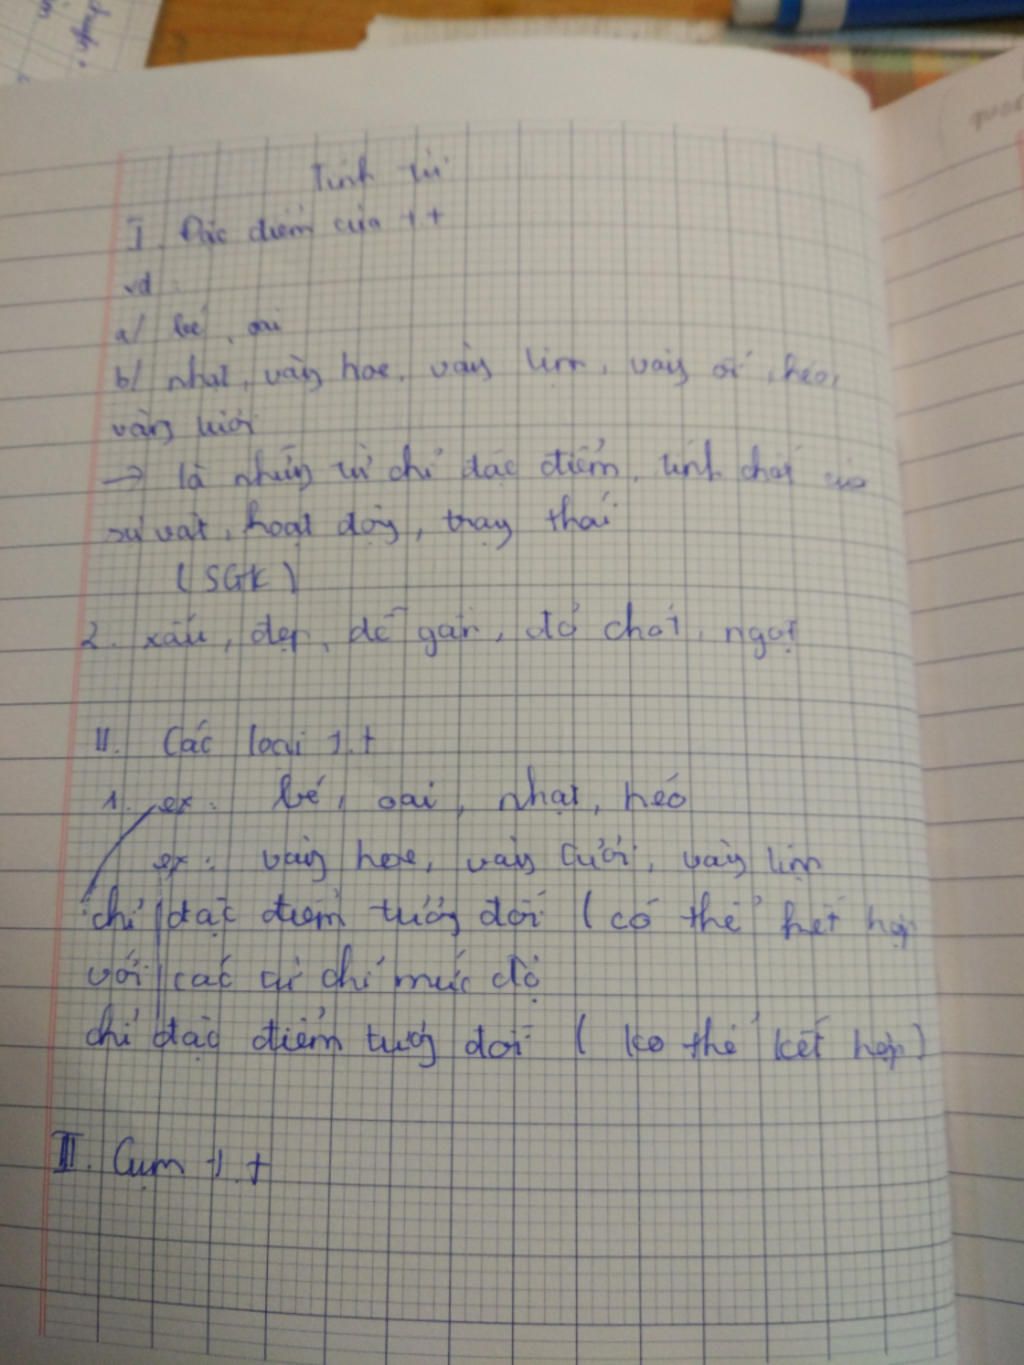 Tính từ
I. Đặc điểm của t.t
vd:
a/ bé, oai
b/ nhạt, vàng hoe, vàng lịm, vàng ối, héo,
vàng tươi
→ là những từ chỉ đặc điểm, tính chất của
sự vật, hoạt động, trạng thái
(SGK)
2. xấu, đẹp, dễ gần, đỏ chót, ngọt
II. Các loại t.t
1. ex: bé, oai, nhạt, héo
ex: vàng hoe, vàng tươi, vàng lịm
chỉ đặc điểm tương đối (có thể kết hợp
với các từ chỉ mức độ
chỉ đặc điểm tương đối (ko thể kết hợp)
III. Cụm t.t